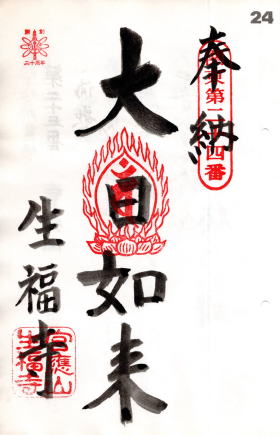 24
奉納
第二十四番
大日如来
生福寺
生福寺
二十周年